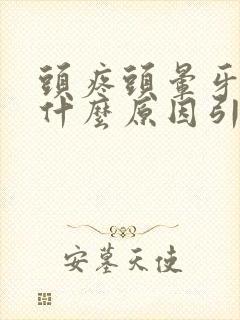 頭疼頭暈牙
什麼原因引
安墓天使